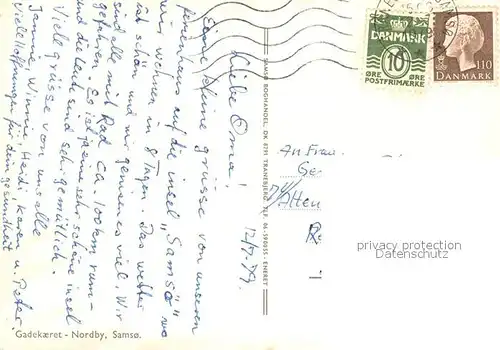 Liebe Oma!
Eine kleine grüsse von unseren
ferienhaus auf die insel "Samsø" wo
wir wohnen in 8 Tagen. Das wetter
ist schön und wir geniessen es viel. Wir
sind alle mit Rad ca. 100 km rum-
gefahren. Es ist ganze sehr schöne insel
und die Leute sind sehr gemütlich.
Viele grüsse von uns alle
Janne, Winnie, Heidi, Karen u. Peter.
Viele Hoffnungen für dein gesundheit
12/7.79.
Gadekæret - Nordby, Samsø.
SAMSØ BOGHANDEL, DK 8791 TRANEBJERG, TLF. 06-590055 - ENERET
DANMARK
10
ØRE ØRE
POSTFRIMÆRKE
110
DANMARK
An Frau
Ge
Alten
R
privacy protection
watermark
Datenschutz